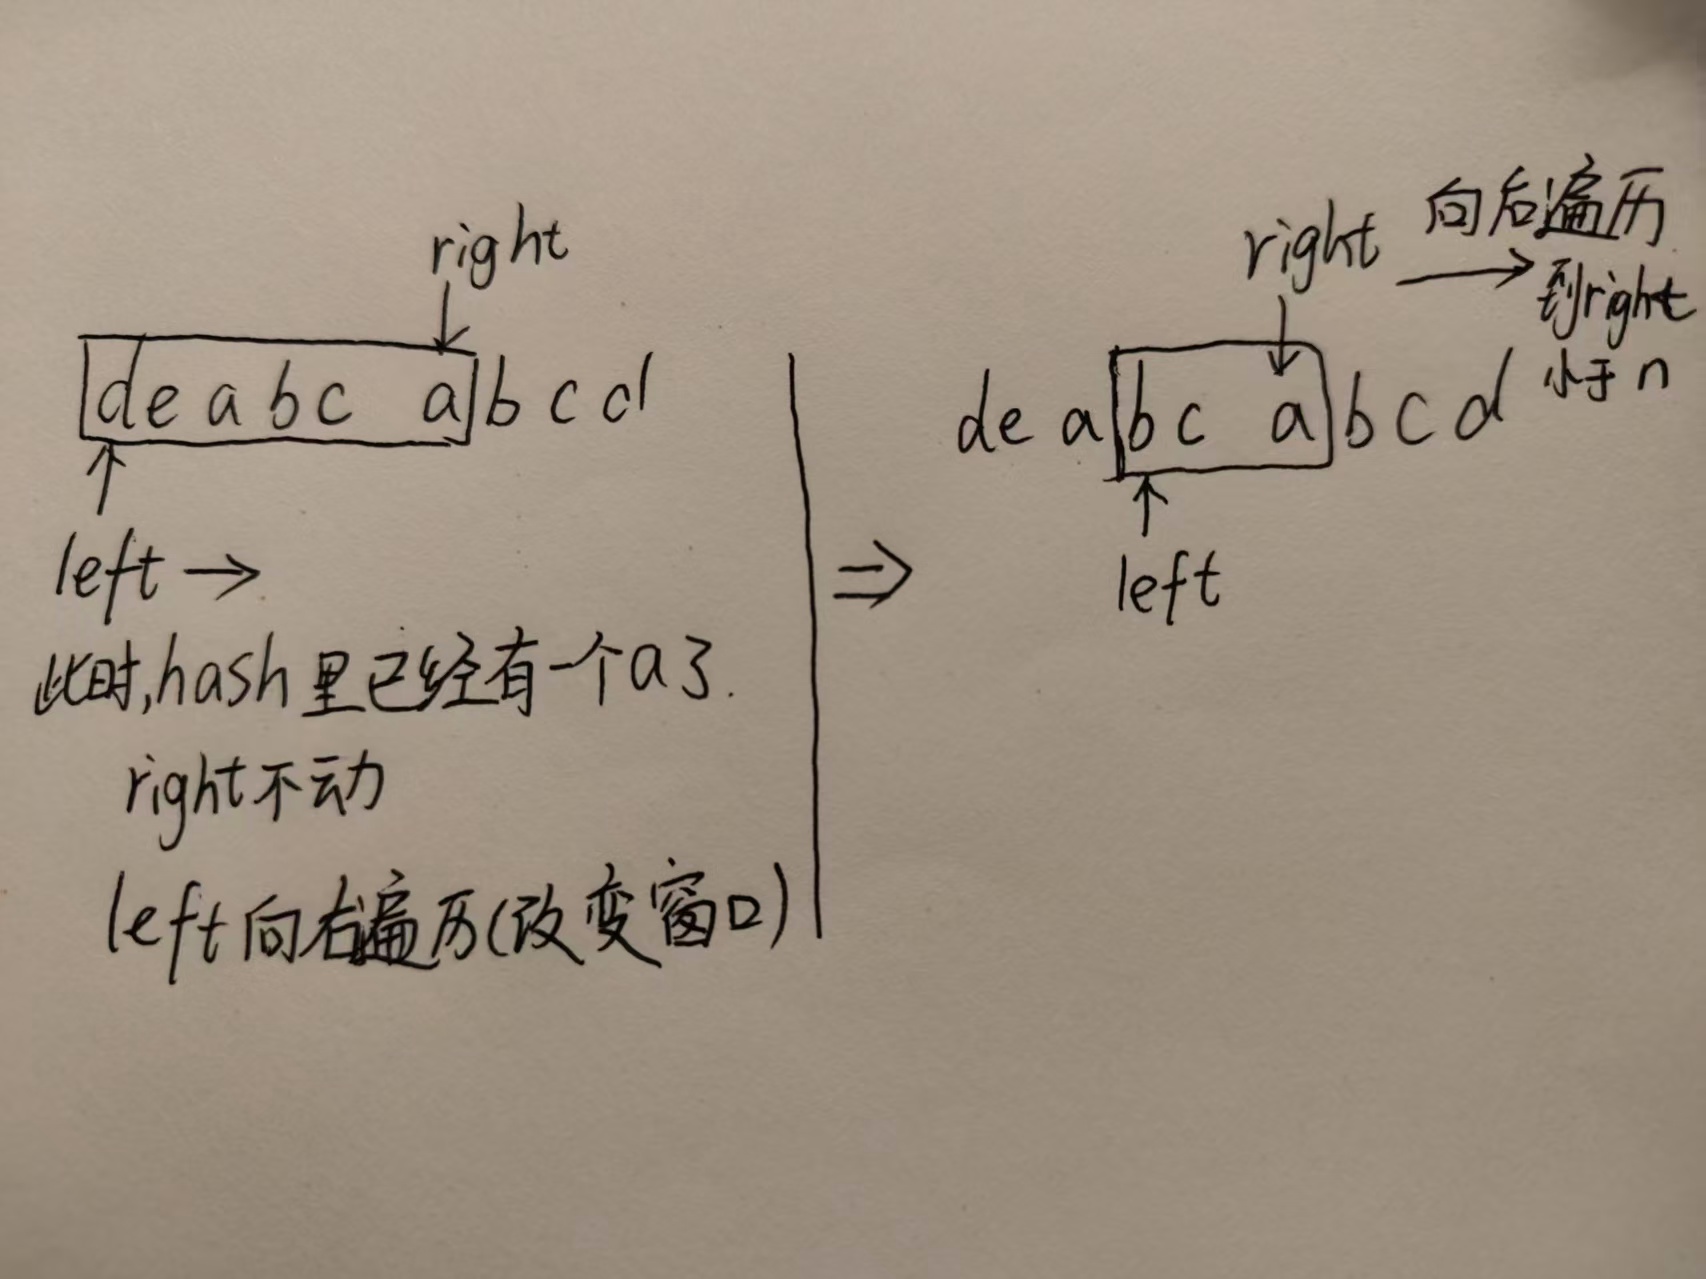 right
deabc abcd
left →
此时,hash里已经有一个a了.
right不动
left向右遍历(改变窗口)
⇒
right → 向后遍历
到right
小于n
deabc abcd
left